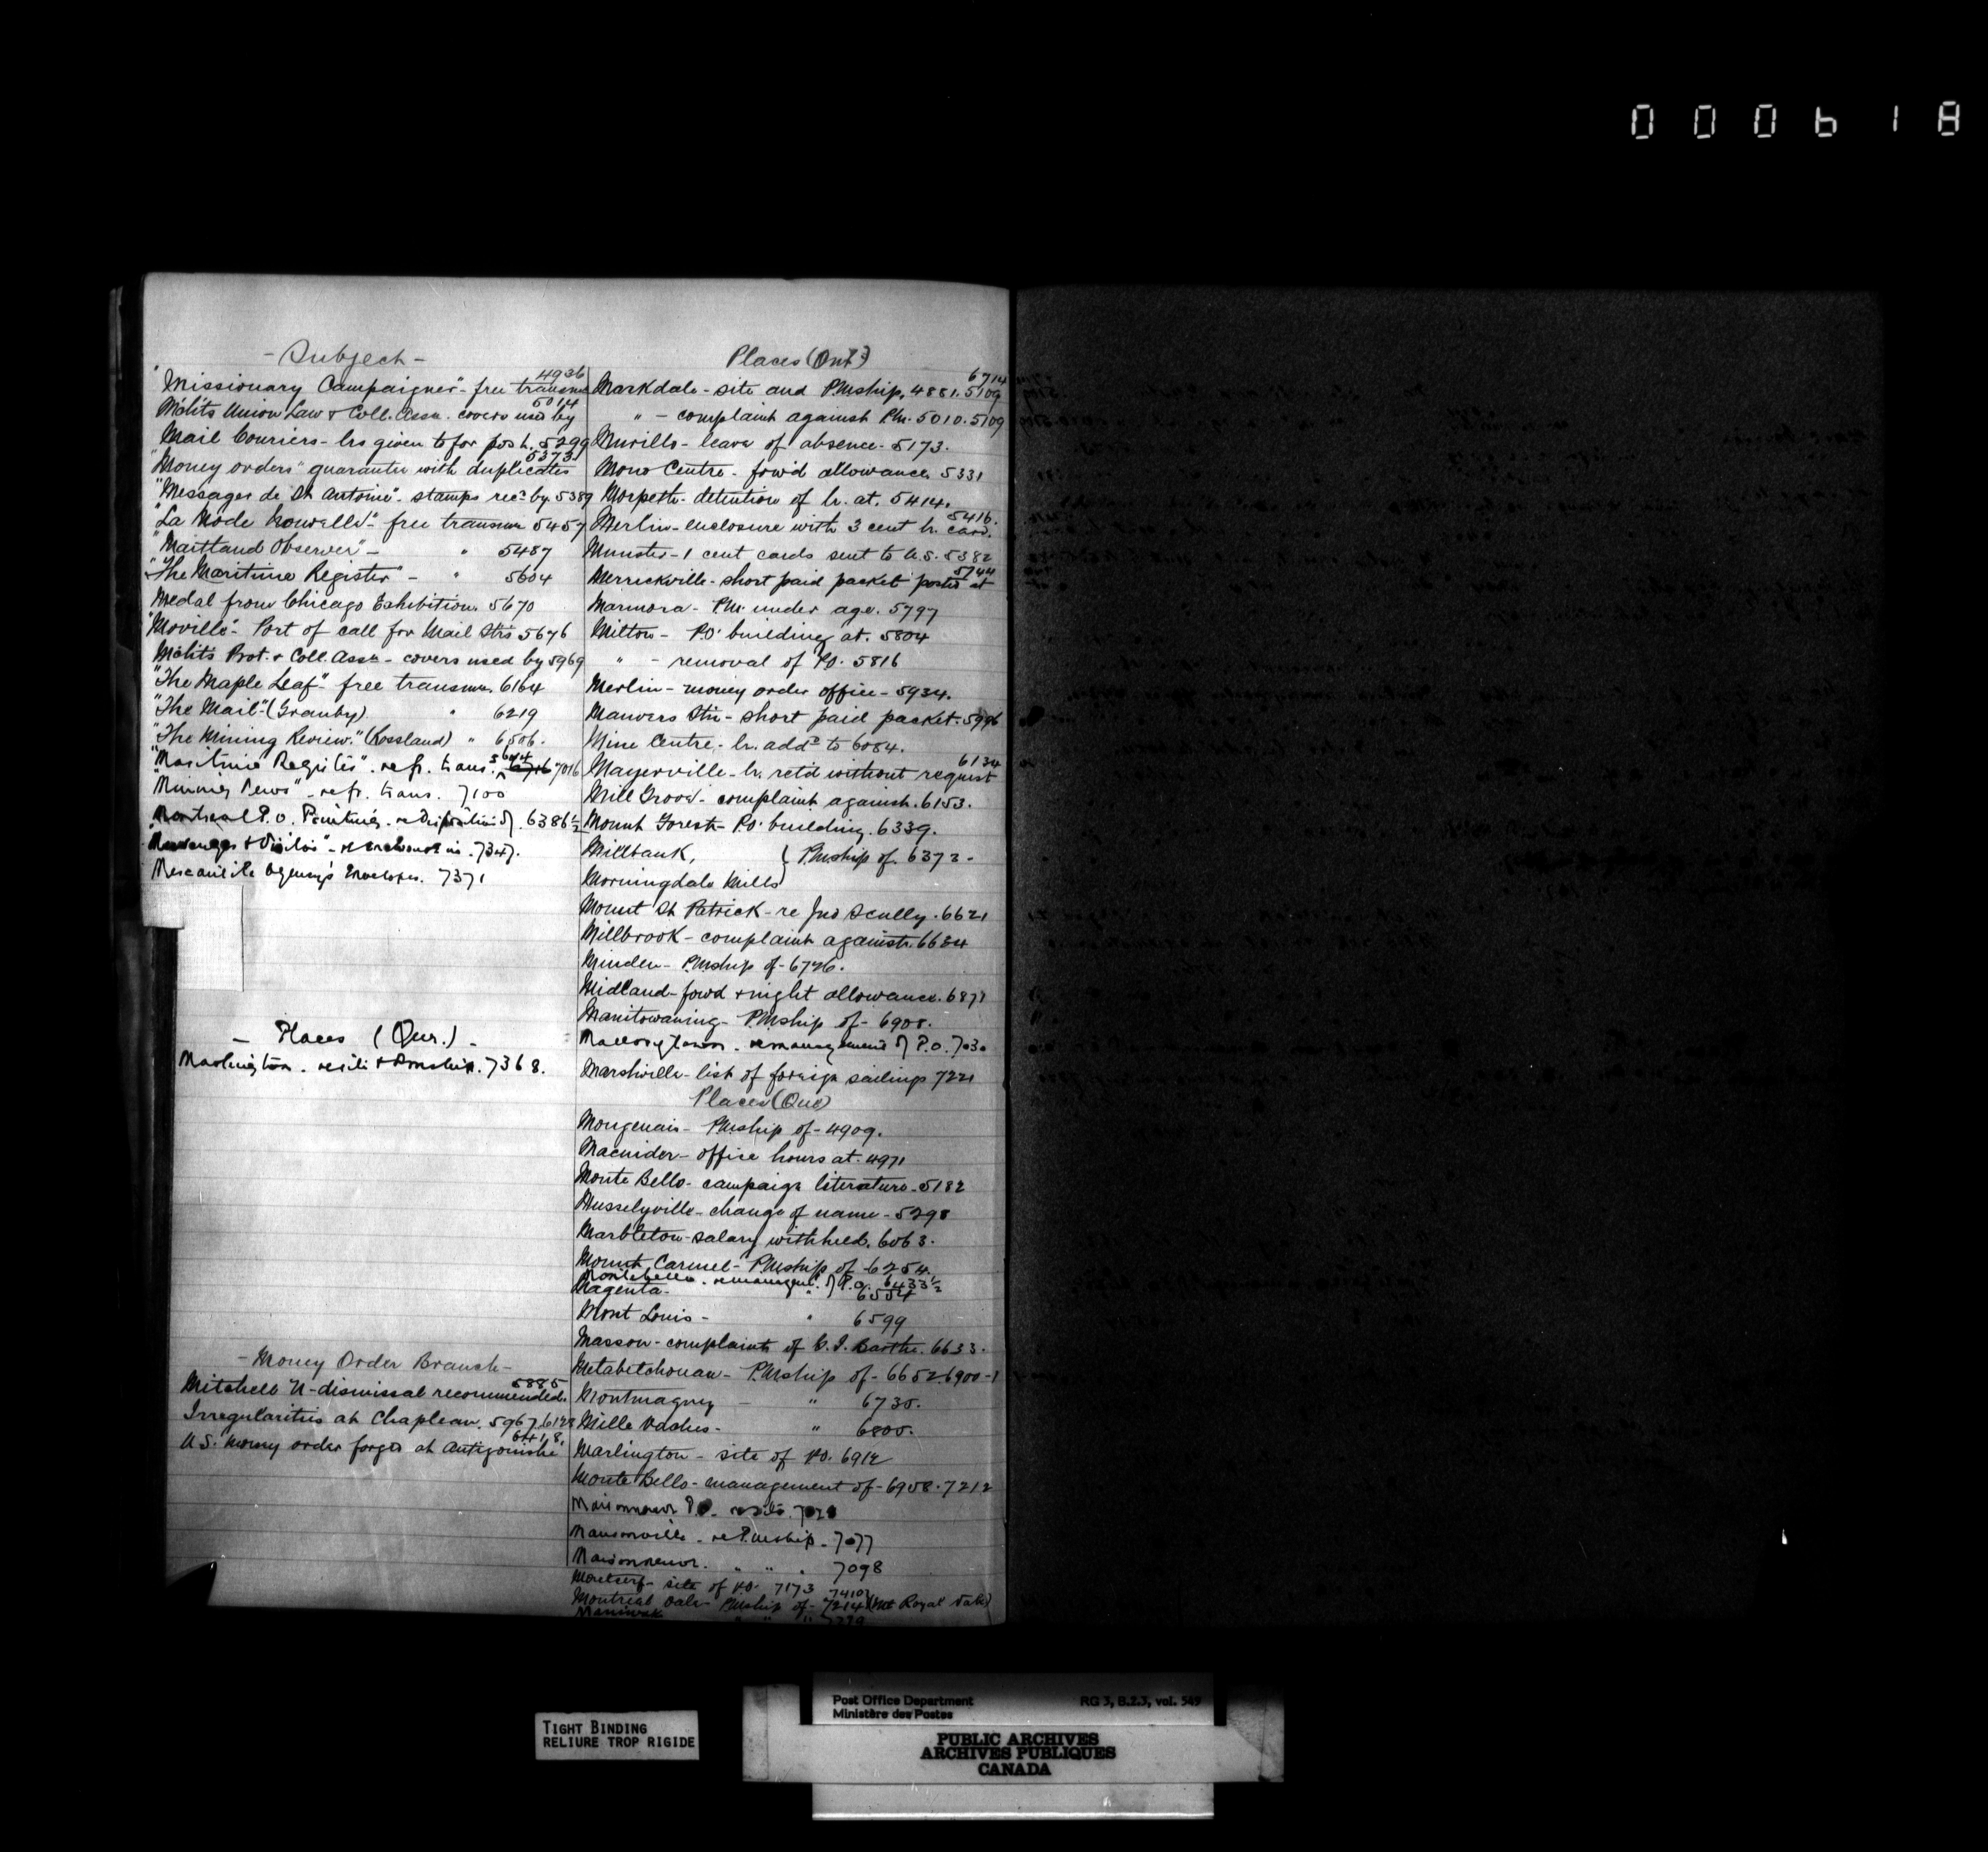 000618
- Subject -
"Missionary Campaigner" - free transmn 4936
Mchts Union Law & Coll. Assn. covers used by 5014
Mail Couriers - lrs given to for post. 5299
"Money orders" guarantee with duplicates 5373
"Messager de St Antoine" - stamps recd by. 5389
"La Mode Nouvelle" - free transmn 5457
"Maitland Observer" - " 5487
"The Maritime Register" - " 5604
Medal from Chicago Exhibition. 5670
"Moville" - Port of call for Mail Strs 5676
Mchts Prot. & Coll. Assn - covers used by 5969
"The Maple Leaf" - free transmn. 6164
"The Mail" (Granby) " 6219
"The Mining Review." (Rossland) " 6506.
"Maritime Register" - refr. trans. 5604 7016
"Mining News" - refr. trans. 7100
Montreal P.O. Painting - re disposition of. 6386½
"Messenger & Visitor" - re enclosures in. 7347.
Mercantile Agency's Envelopes. 7371
- Places (Que.) -
Marlington - re site & Pmship. 7368.
- Money Order Branch -
Mitchell N - dismissal recommended. 5885
Irregularities at Chapleau. 5967. 6128
U.S. money order forged at Antigonishe 6418.
Places (Ont)
Markdale - site and PMship. 4881. 5109 6714
" - complaint against Pm. 5010. 5109
Murillo - leave of absence - 5173.
Mono Centre - fow'd allowance 5331
Morpeth - detention of lr. at. 5414.
Merlin - enclosure with 3 cent lr. card. 5416.
Munster - 1 cent cards sent to U.S. 5382
Merrickville - short paid packet posted at 5744
Marmora - Pm. under age. 5797
Milton - P.O. building at. 5804
" - removal of P.O. 5816
Merlin - money order office - 5934.
Manvers Stn - short paid packet. 5996
Mine Centre - lr. addd to 6084.
Mayerville - lr. ret'd without request 6134
Mill Grove - complaint against. 6153.
Mount Forest - P.O. building. 6339.
Millbank, } Pmship of. 6372 -
Morningdale Mills
Mount St Patrick - re Jno Scully. 6621
Millbrook - complaint against. 6684
Minden - P.Mship of - 6726.
Midland - fowd & night allowance. 6871
Manitowaning - P.Mship of - 6908.
Mallorytown - re management of P.O. 7030
Marshville - list of foreign sailings 7221
Places (Que)
Mongenais - Pmship of - 4909.
Macnider - office hours at. 4971
Monte Bello - campaign literature - 5182
Musselyville - change of name - 5298
Marbleton - salary withheld. 6063.
Mount Carmel - PMship of - 6254.
Montebello - re managemt. of P.O. 6433½
Magenta - " 6554
Mont Louis - " 6599
Masson - complaints of 6633.
Metabetchouan - P.Mship of - 6652. 6900-1
Montmagny - " 6730.
Mille Vaches - " 6800.
Marlington - site of P.O. 6912
Monte Bello - management of - 6908. 7212
Maisonneuve P.O. - re site.
Mansonville - re P.Mship - 7077
Maisonneuve. " " . 7098
Montcerf - site of P.O. 7173
Montreal Vale - PMship of - 7214 7410 (Mt Royal Vale)
Maniwaki " " "
Post Office Department
Ministère des Postes
RG 3, B.2.3, vol. 549
TIGHT BINDING
RELIURE TROP RIGIDE
PUBLIC ARCHIVES
ARCHIVES PUBLIQUES
CANADA